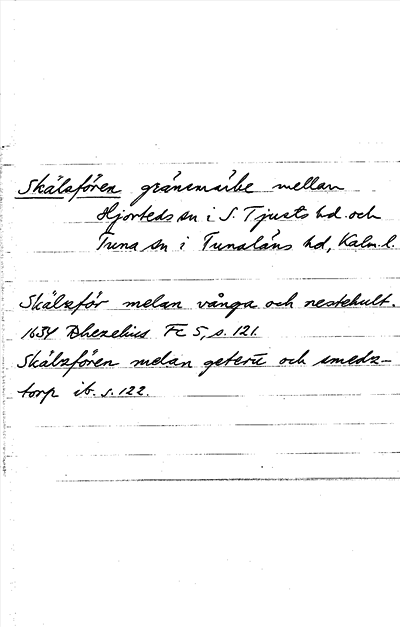 Skälsfören gränsmärke mellan
Hjorteds sn i S. Tjusts hd. och
Tuna sn i Tunaläns hd, Kalm. l.
Skälsför melan vånga och nestehult.
1654 Rhezelius Fc 5, s. 121.
Skälsfören melan geterū och smedz-
torp ib. s. 122.